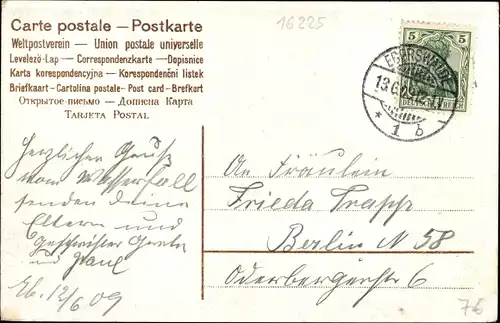 Carte postale – Postkarte
Weltpostverein – Union postale universelle
Levelező-Lap – Correspondenzkarte – Dopisnice
Karta korespondencyjna – Korespondenční lístek
Briefkaart – Cartolina postale – Post card – Brefkort
Открытое письмо – Дописна Карта
Tarjeta Postal
16225
5 5
EBERSWALDE
13.6.09
* 1 b
DEUTSCHES REICH
Herzlichen Gruß
vom Wasserfall
senden deine
Eltern und
Geschwister Grete
und Paul
Eb. 12/6 09
An Fräulein
Frieda Trapp
Berlin N 58
Oderbergerstr 6
76